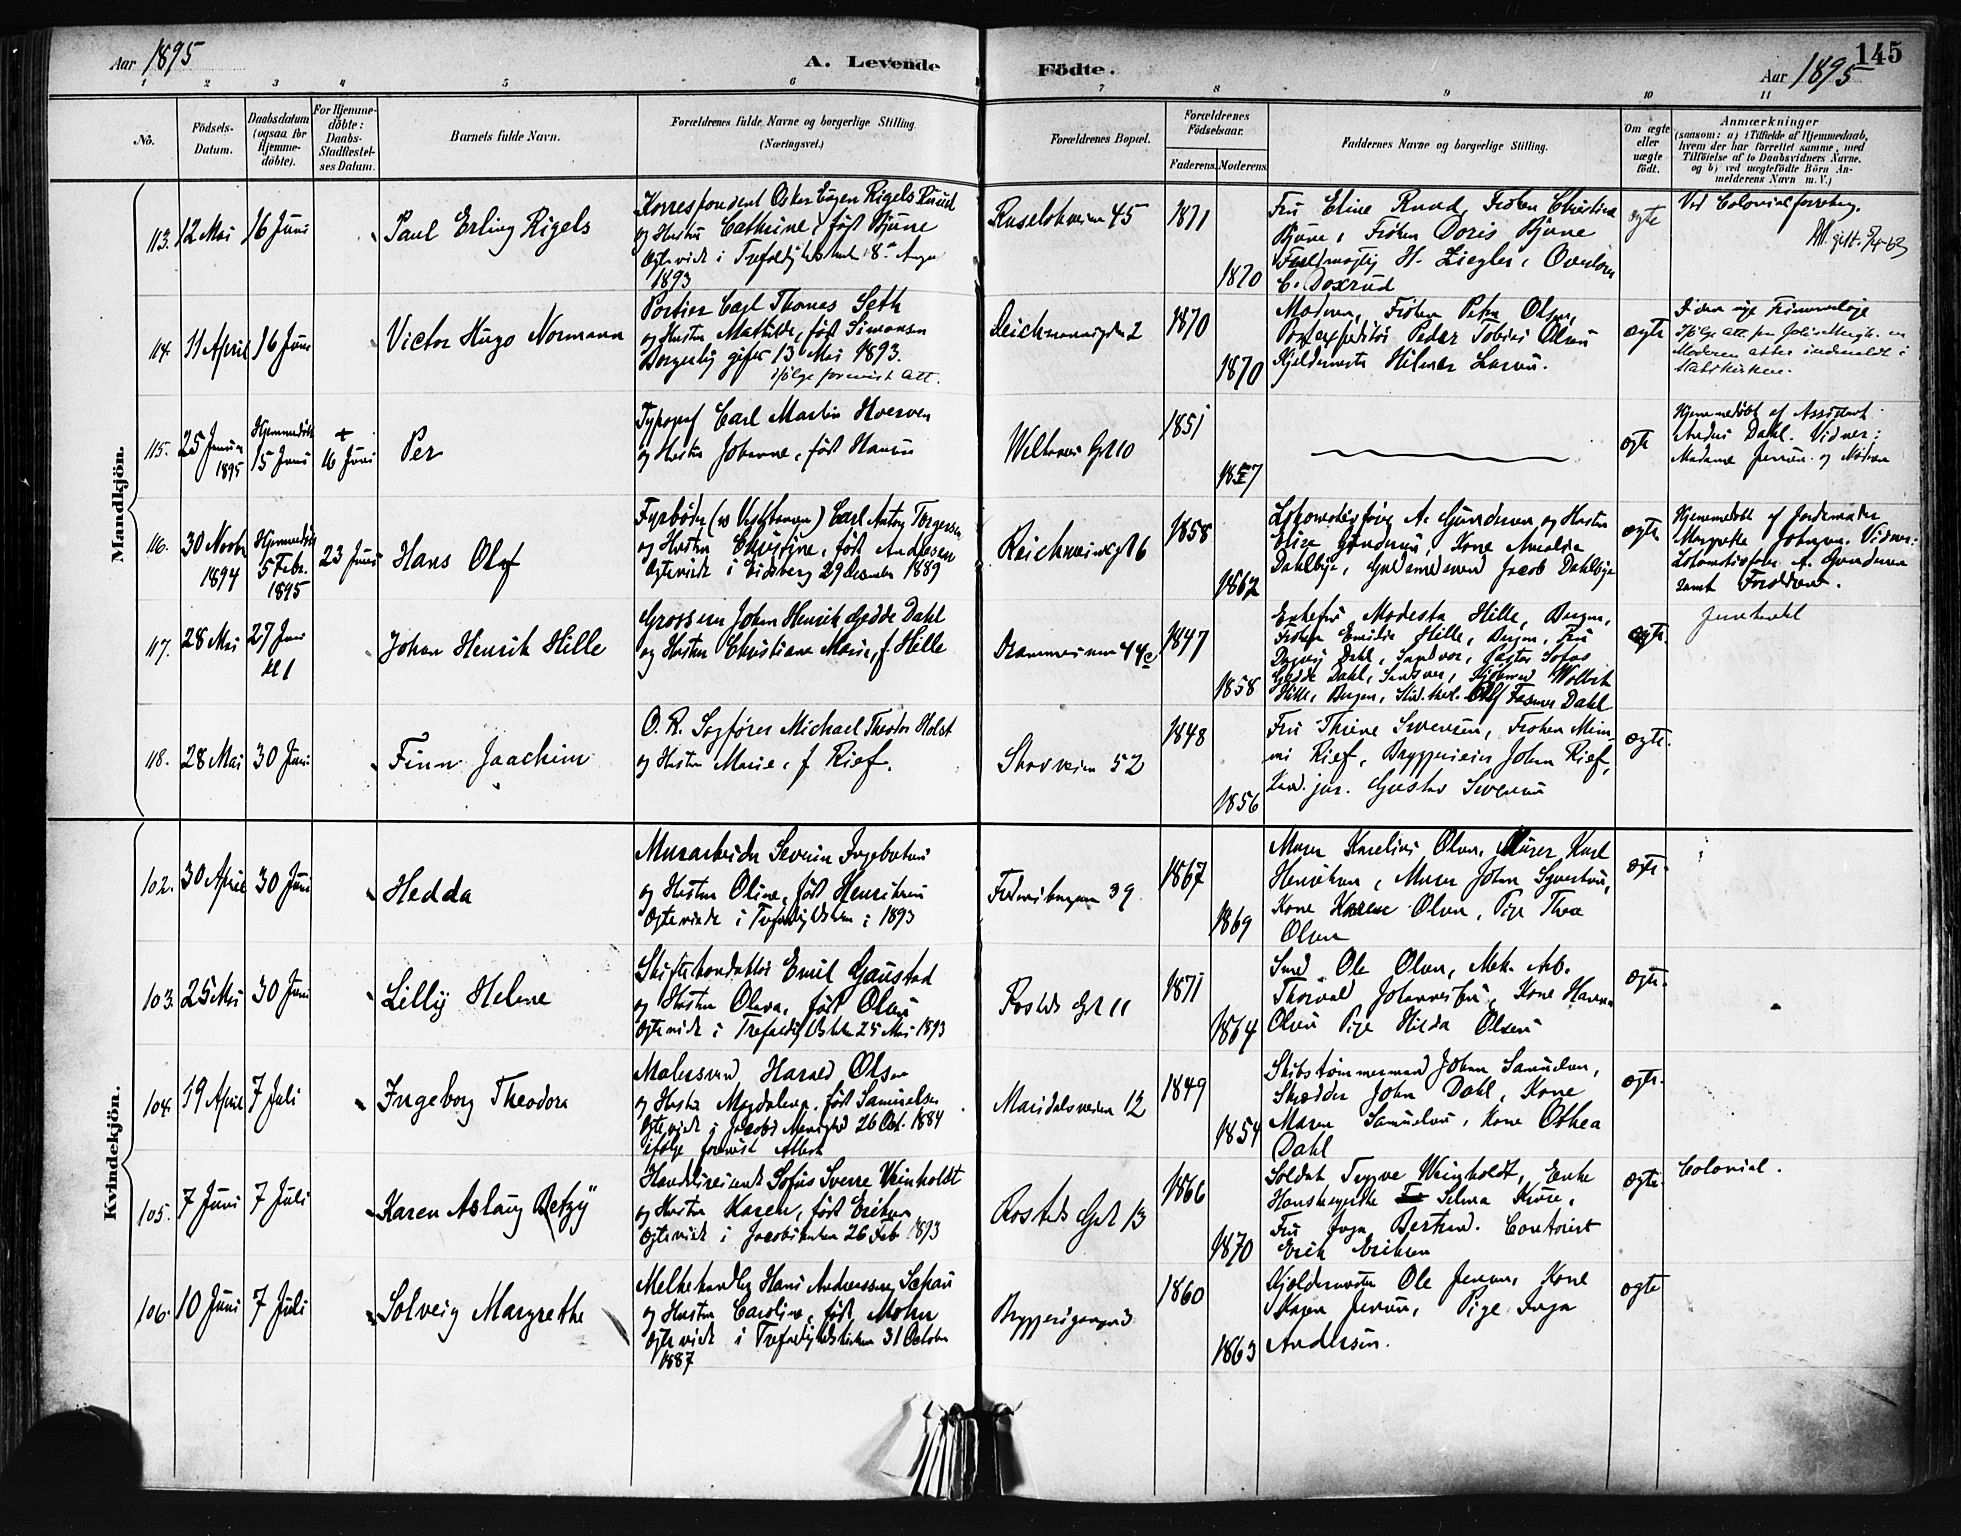 Aar 1895
A. Levende
Födte.
Aar 1895
145
1 2 3 4 5 6 7 8 9 10 11
No.
Födsels-
Datum.
Daabsdatum
(ogsaa for
Hjemme-
döbte).
For Hjemme-
döbte:
Daabs-
Stadfæstel-
ses Datum.
Barnets fulde Navn.
Forældrenes fulde Navne og borgerlige Stilling.
(Næringsvei.)
Forældrenes Bopæl.
Forældrenes
Födselsaar.
Faderens. Moderens.
Faddernes Navne og borgerlige Stilling.
Om ægte
eller
uægte
födt.
Anmærkninger
(saasom: a) i Tilfælde af Hjemmedaab,
hvem der har forrettet samme, med
Tilföielse af to Daabsvidners Navne,
og b) ved uægtefödte Börn An-
melderens Navn m. V.)
Mandkjön.
113. 12 Mai 16 Juni Paul Erling Rigels
Korrespondent Oskar Eugen Rigels Ruud
og Hustru Cathrine, født Bjune
Ægteviede i Trefoldighedskirken 8 Aug
1893
45
1871
1870
Fru Eline Ruud, Frøken Christine
Bjune, Frøken Doris Bjune
Fuldmægtig H. Ziegler,
C. Doxrud
ægte
114. 11 April 16 Juni Victor Hugo Normann
Portier Carl Thomas Seth
og Hustru Mathilde, født Simonsen
Borgerlig gifte 13 Mai 1893.
ifølge forevist Att.
2
1870
1870
Moderen, Frøken Petra Olsen,
Postexpeditør Peder Tobias Olsen
Kjeldermester Hilmar Larsen.
ægte
Moderen atter indmeldt i
Statskirken.
115. 25 Januar
1895
Hjemmedøbt
15 Juni
+
16 Juni
Per
Typograf Carl Martin Hverven
og Hustru Johanne, født Hansen
10
1851
1857
ægte
Hjemmedøbt af Assistent
Dahl. Vidner:
Madame Jensen og Moderen
116. 30 Novbr
1894
Hjemmedøbt
5 Febr.
1895
23 Juni
Hans Olaf
Fyrbøder Carl Anton Torgersen
og Hustru født Andresen
Ægteviede i Eidsberg 29 December 1889
6
1858
1862
A. Gundersen og Hustru
Elise Gundersen, Kone Amalie
Dahlbye, Jacob Dahlbye
ægte
Hjemmedøbt af Jordemoder
Margrethe Johansen. Vidner:
A. Gundersen
samt Forældrene.
117. 28 Mai 27 Juni
kl 1
Johan Henrik Hille
Grosserer Johan Henrik Gedde Dahl
og Hustru Christiane Marie, f. Hille
Drammensveien 44c
1847
1858
Enkefru Modesta Hille, Bergen,
Frøken Emilie Hille, Bergen, Fru
Dagny Dahl, Pastor Sofus
Gedde Dahl,
Hille, Bergen, Stud. Olaf Dahl
ægte.
118. 28 Mai 30 Juni Finn Joachim
O. R. Sagfører Michael Theodor Holst
og Hustru Marie, f. Rief.
52
1848
1856
Fru Thrine Sivertsen, Frøken Mim-
mi Rief, Bryggerieier Johan Rief,
Kand. jur. Gustav Sivertsen
ægte.
Kvindekjön.
102. 30 April 30 Juni Hedda
Murarbeider Severin Ingebretsen
og Hustru Oline, født Henriksen
Ægteviede i Trefoldighedskirken i 1893
39
1867
1869
Murer Karelius Olsen, Murer Karl
Henriksen, Murer Johan Syvertsen,
Kone Karen Olsen, Pige Thea
Olsen
ægte.
103. 25 Mai 30 Juni Lilly Helene
Emil Gaustad
og Hustru Oleva, født Olsen
Ægteviede i Trefoldighedskirken 25 Mai 1893
Rosteds Gd. 11
1871
1864
Smed Ole Olsen, Mek. Arb.
Thorvald Johannesen, Kone Hanna
Olsen Pige Hilda Olsen
ægte.
104. 19 April 7 Juli Ingeborg Theodora
Malersvend Harald Olsen
og Hustru Magdalena, født Samuelsen
Ægteviede i Jacobs Menighed 26 Oct. 1884
ifølge forevist Attest
Maridalsveien 12
1849
1854
Skibstømmermand Johan Samuelsen,
Skrædder John Dahl, Kone
Maren Samuelsen, Kone Othea
Dahl
ægte.
105. 7 Juni 7 Juli Karen Aslaug Betzy
Handelsreisende Sofus Sverre Weinholdt
og Hustru Karen, født Eriksen
Ægteviede i Jacobskirken 26 Feb 1893
Rosteds Gd. 13
1866
1870
Soldat Trygve Weinholdt, Enke
Selma
Fru Inga Bertrand. Contorist
Erik Eriksen
ægte.
Colonial.
106. 10 Juni 7 Juli Solveig Margrethe
Melkehandler Hans Andreassen Schau
og Hustru Caroline, født Mohn
Ægteviede i Trefoldighedskirken 31 October
1887
3
1860
1863
Kjeldermester Ole Jensen, Kone
Hagen Jensen, Pige Inga
Andersen.
ægte